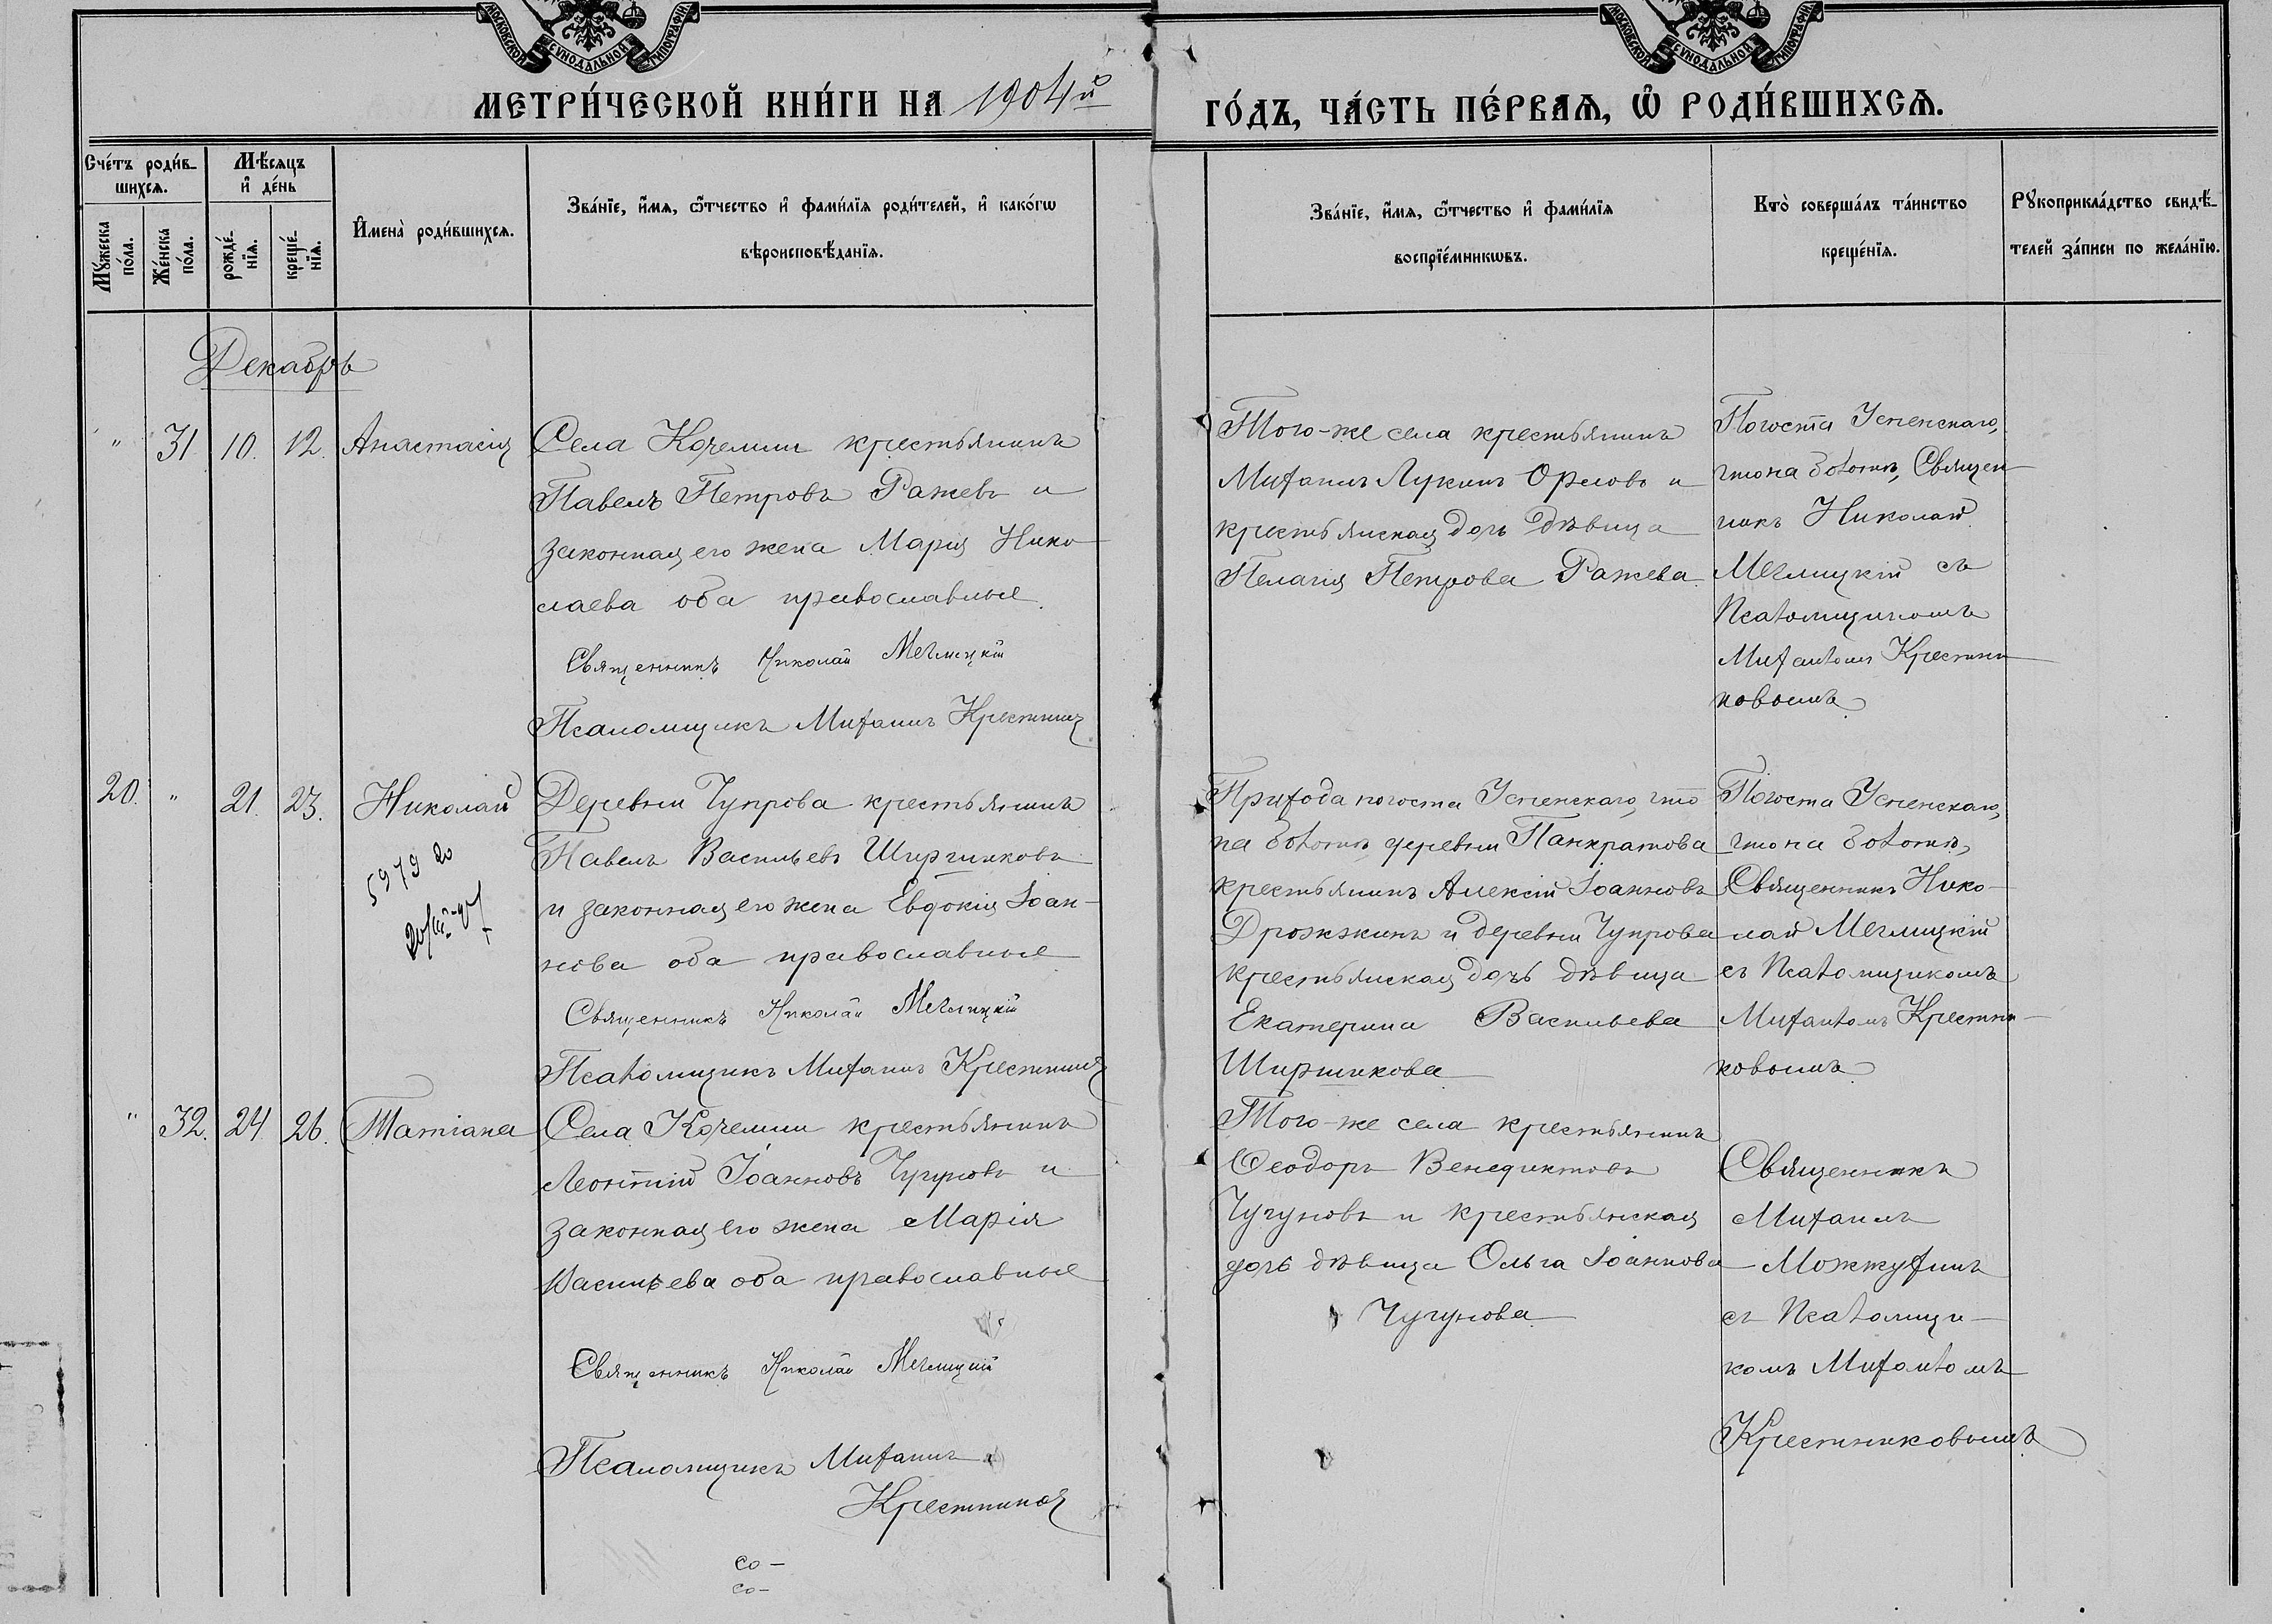 МОСКОВСКОЙ СѴНОДАЛЬНОЙ ТИПОГРАФІИ
МОСКОВСКОЙ СѴНОДАЛЬНОЙ ТИПОГРАФІИ
МЕТРИ́ЧЕСКОЙ КНИ́ГИ НА 1904й
ГО́ДЪ, ЧА́СТЬ ПЕ́РВАѦ, Ѡ҆ РОДИ́ВШИХСѦ.
Сче́тъ роди́в-
шихсѧ.
Мѣ́сѧцъ
и҆ де́нь
Мꙋ́жеска
по́ла.
Же́нска
по́ла.
рожде́-
нїѧ.
креще́-
нїѧ.
И҆мена̀ роди́вшихсѧ.
Зва́нїе, и҆́мѧ, ѻ҆́тчество и҆ фами́лїѧ роди́телей, и҆ како́гѡ
вѣроисповѣ́данїѧ.
Зва́нїе, и҆́мѧ, ѻ҆́тчество и҆ фами́лїѧ
воспрїе́мникѡвъ.
Кто̀ соверша́лъ та́инство
креще́нїѧ.
Рꙋкоприкла́дство свидѣ́-
телей за́писи по жела́нїю.
Декабрь
" 31 10. 12. Анастасія
Села Кочемли крестьянинъ
Павелъ Петровъ Ражевъ и
законная его жена Марія Нико
лаева оба православные.
Священникъ Николай Меглицкій
Псаломщикъ Михаилъ Крестник
Того-же села крестьянинъ
Михаилъ Лукинъ Орловъ и
крестьянская дочь дѣвица
Пелагія Петрова Ражева.
Погоста Успенскаго,
что на болотѣ, Священ
никъ Николай
Меглицкій съ
Псаломщикомъ
Михаиломъ Крестни
ковымъ
20. " 21. 23. Николай
5979 20
Деревни Чупрова крестьянинъ
Павелъ Васильевъ Ширшиковъ
и законная его жена Евдокія Іоан-
нова оба православные
Священникъ Николай Меглицкій
Псаломщикъ Михаилъ Крестник
Прихода погоста Успенскаго, что
на болотѣ деревни Панкратова
крестьянинъ Алексій Іоанновъ
Дрожжинъ и деревни Чупрова
крестьянская дочь дѣвица
Екатерина Васильева
Ширшикова
Погоста Успенскаго,
что на болотѣ,
Священникъ Нико-
лай Меглицкій
съ Псаломщикомъ
Михаиломъ Крестни-
ковымъ
" 32. 24. 26. Татіана
Села Кочемли крестьянинъ
Леонтій Іоанновъ Чугуновъ и
законная его жена Марія
Васильева оба православные
Священникъ Николай Меглицкій
Псаломщикъ Михаилъ
Крестников
Того-же села крестьянинъ
Ѳеодоръ Венедиктовъ
Чугуновъ и крестьянская
дочь дѣвица Ольга Іоаннова
Чугунова
Священникъ
Михаилъ
Можжухинъ
съ Псаломщи-
комъ Михаиломъ
Крестниковымъ
со-
со-